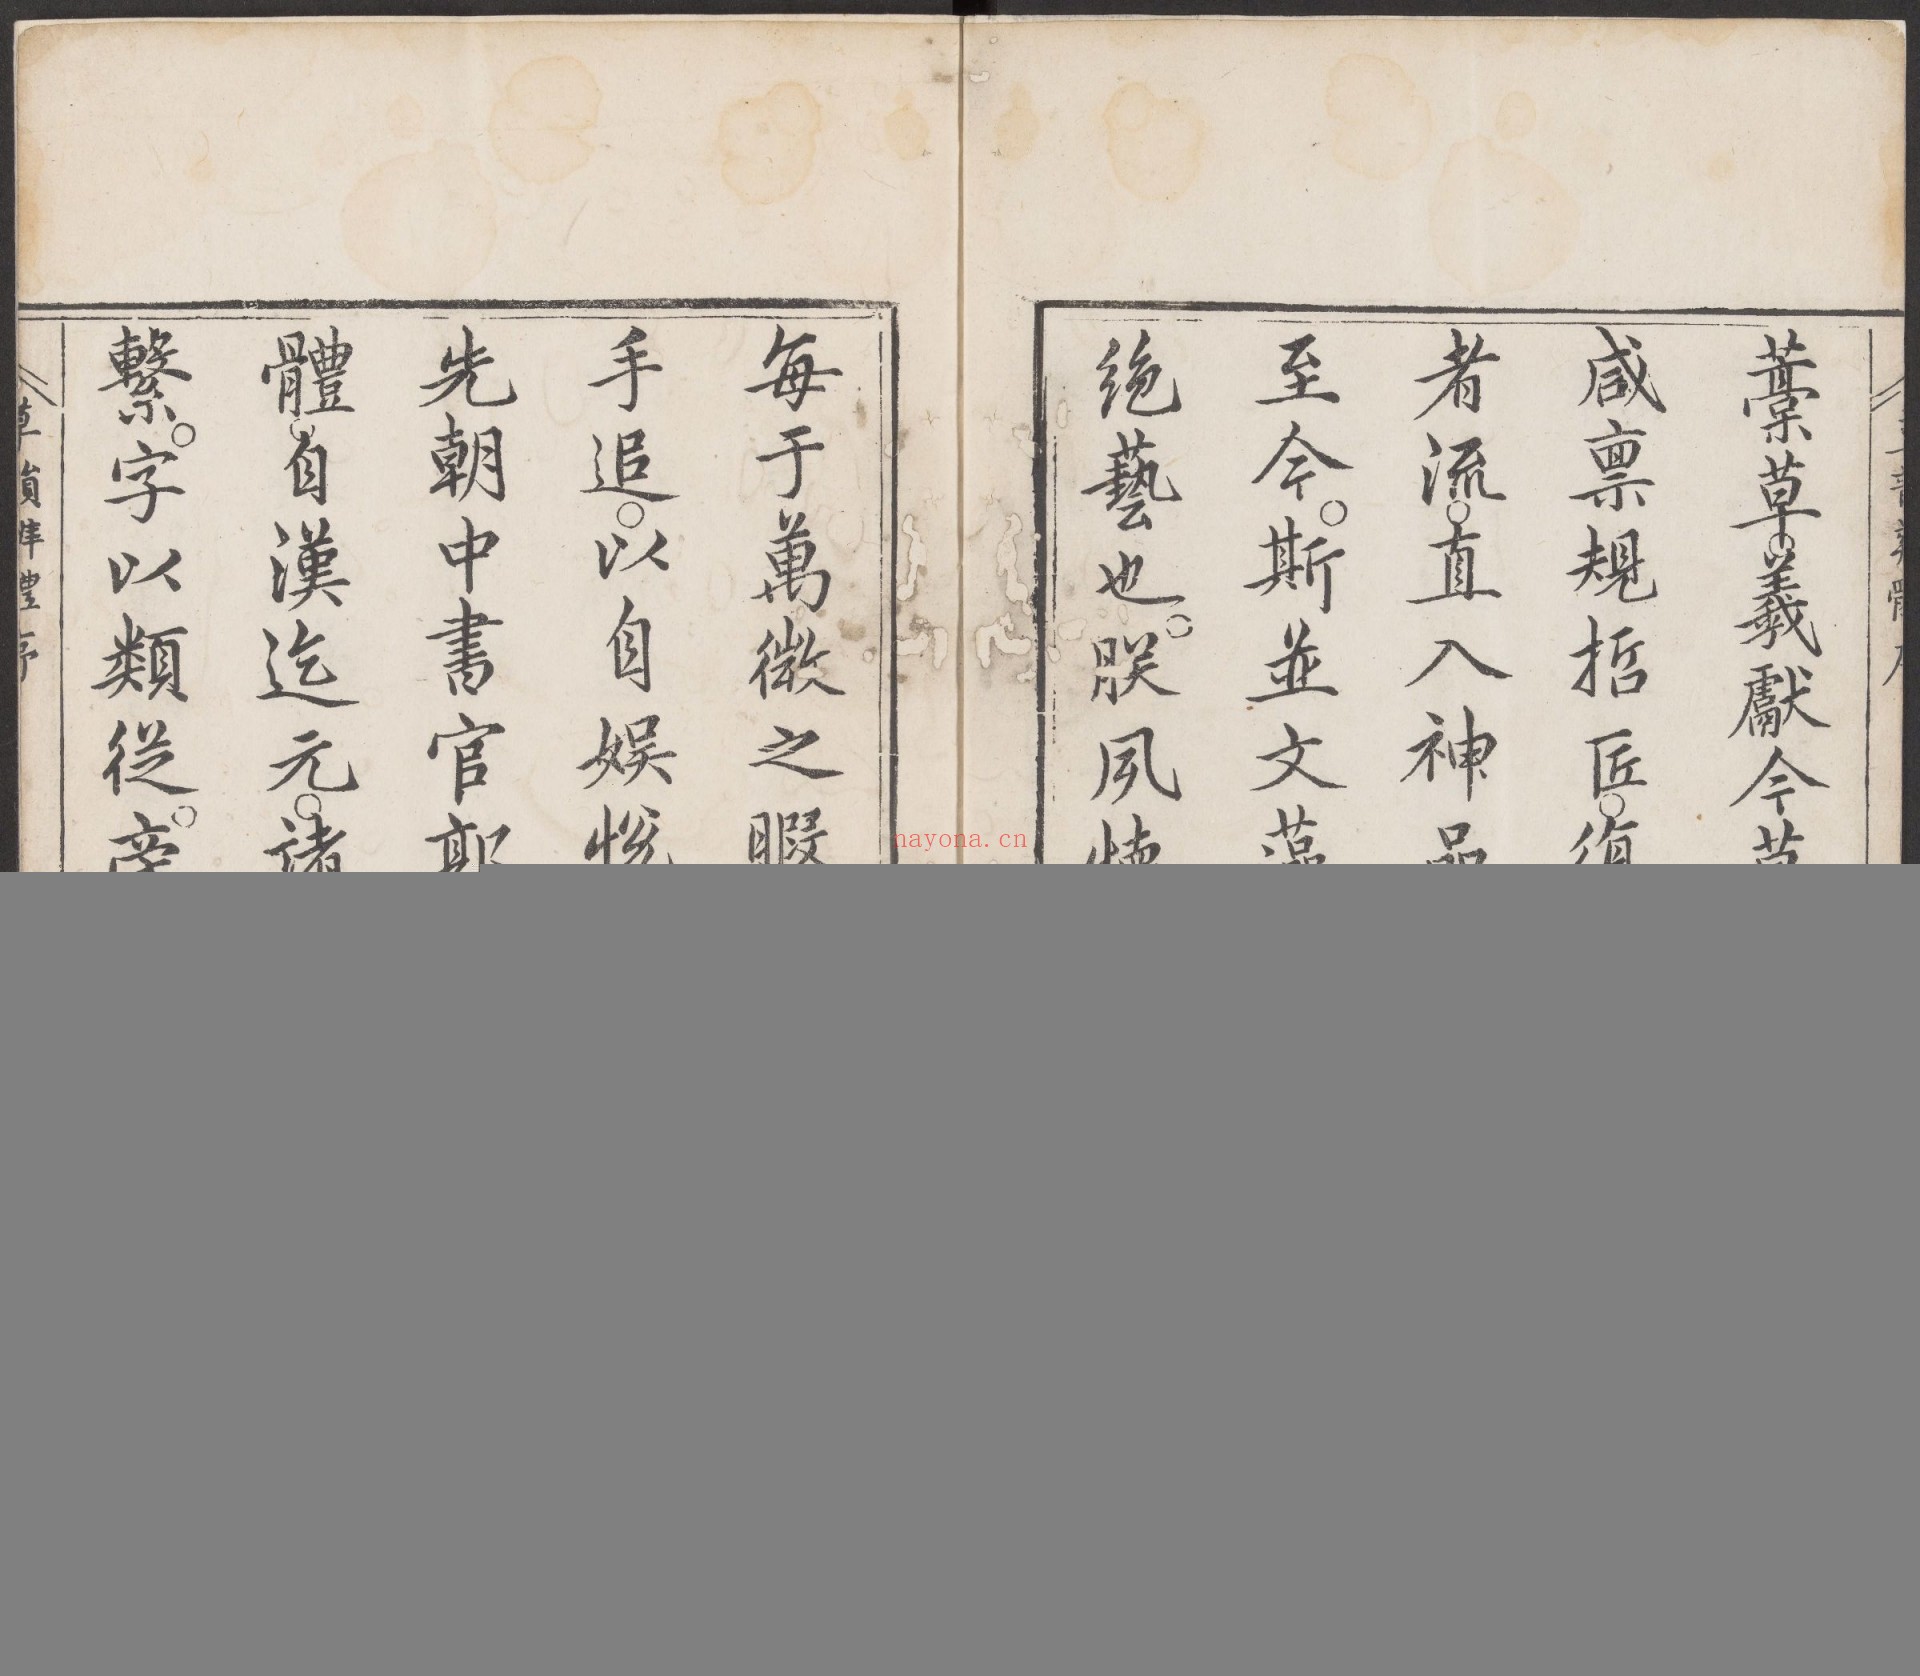 藁草羲獻今草
咸禀規哲匠復
者流直入神品
至今斯並文藻
絶藝也朕夙
每于萬微之暇
手追以自娱
先朝中書官郭
體自漢迄元諸
繫字以類從旁
草韻辨體序
nayona.cn